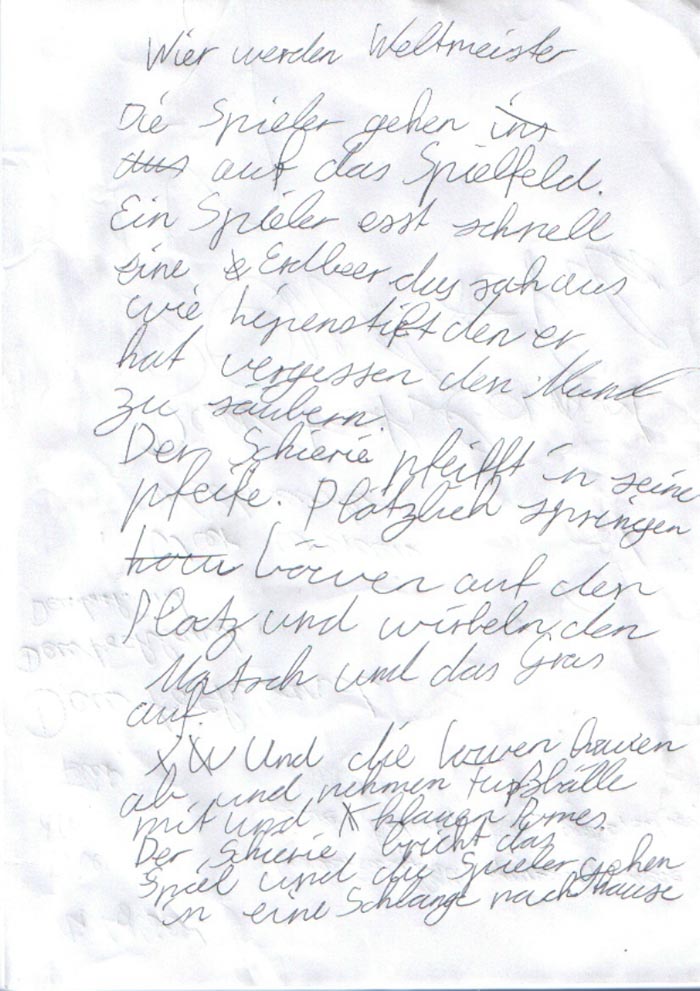 Wier werden Weltmeister
Die Spieler gehen ins
aus auf das Spielfeld.
Ein Spieler esst schnell
eine Erdbeer das sah aus
wie lipenstift den er
hat vergessen den Mund
zu säubern.
Der Schierie pfeifft in seine
pfeife. Plötzlich springen
Löwen auf den
Platz und wirbeln den
Matsch und das Gras
auf.
Und die löwen hauen
ab und nehmen Fußbälle
mit und klauen
Der Schierie bricht das
Spiel und die Spieler gehen
in eine Schlange nach Hause